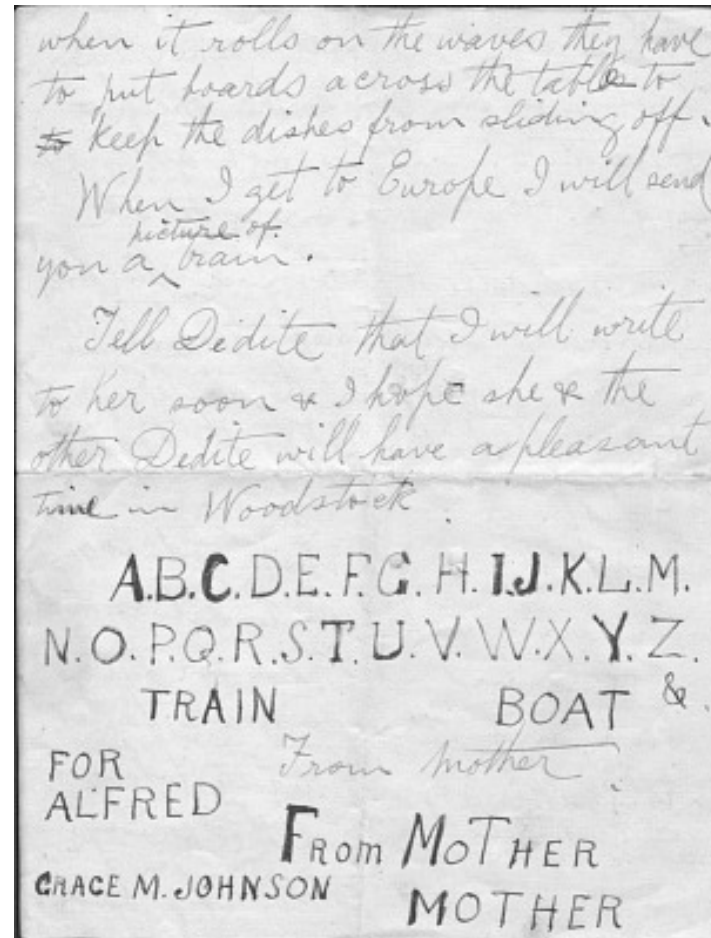 when it rolls on the waves they have
to put boards across the tables to
to keep the dishes from sliding off.
When I get to Europe I will send
picture of
you a ^ train.
Tell Dedite that I will write
to her soon & I hope she & the
other Dedite will have a pleasant
time in Woodstock
A.B.C.D.E.F.G.H.I.J.K.L.M.
N.O.P.Q.R.S.T.U.V.W.X.Y.Z.
TRAIN BOAT &.
FOR From mother
ALFRED
From MOTHER
GRACE M. JOHNSON
MOTHER